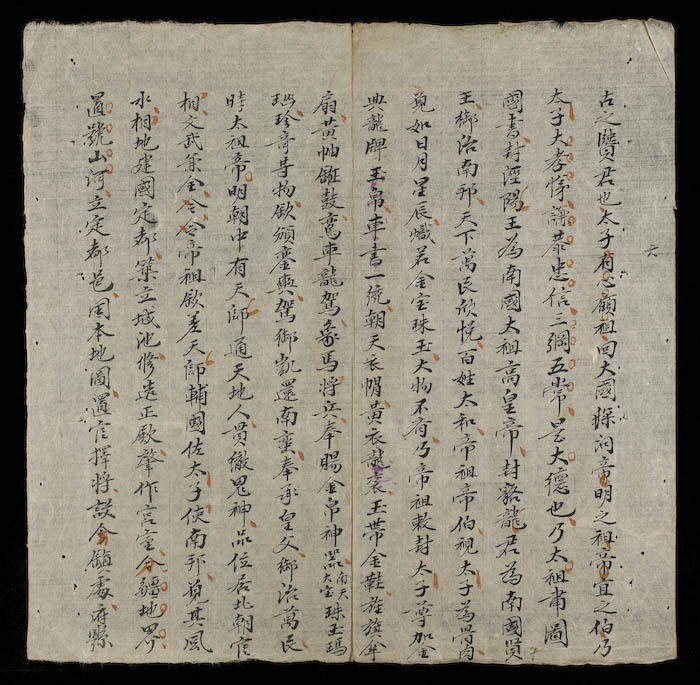 古之賢君也太子有心顧祖回大國探问帝明之祖帝宜之伯乃
太子大孝悌謙恭忠信三綱五常是大德也乃太祖甫圖
國書封涇陽王為南國太祖高皇帝封貉龍君為南國賢
王御治南邦天下萬民欣悅百姓太和帝祖帝伯視太子為骨肉
見如日月星辰熾若金宝珠玉大物不有乃帝祖敕封太子尊加金
典龍牌玉帛車書一统朝天衣帽黄衣龍袞玉帶金鞋旌旗傘
扇黄帕鉦鼓鸞車龍駕象馬将兵奉賜金帛神器南天大宝珠玉瑪
瑙珍奇等物欽頒鑾輿駕御凱還南蛮奉承皇父御治萬民
時太祖帝明朝中有天師通天地人貫徹鬼神品位居北朝官
相文武兼全令令帝祖欽差天師輔國佐太子使南邦覓其風
水相地建國定都築立城池修造正殿肇作宫室分疆地界
置號山河立定都邑因本地圖置官擇将設令鎮處府縣
六